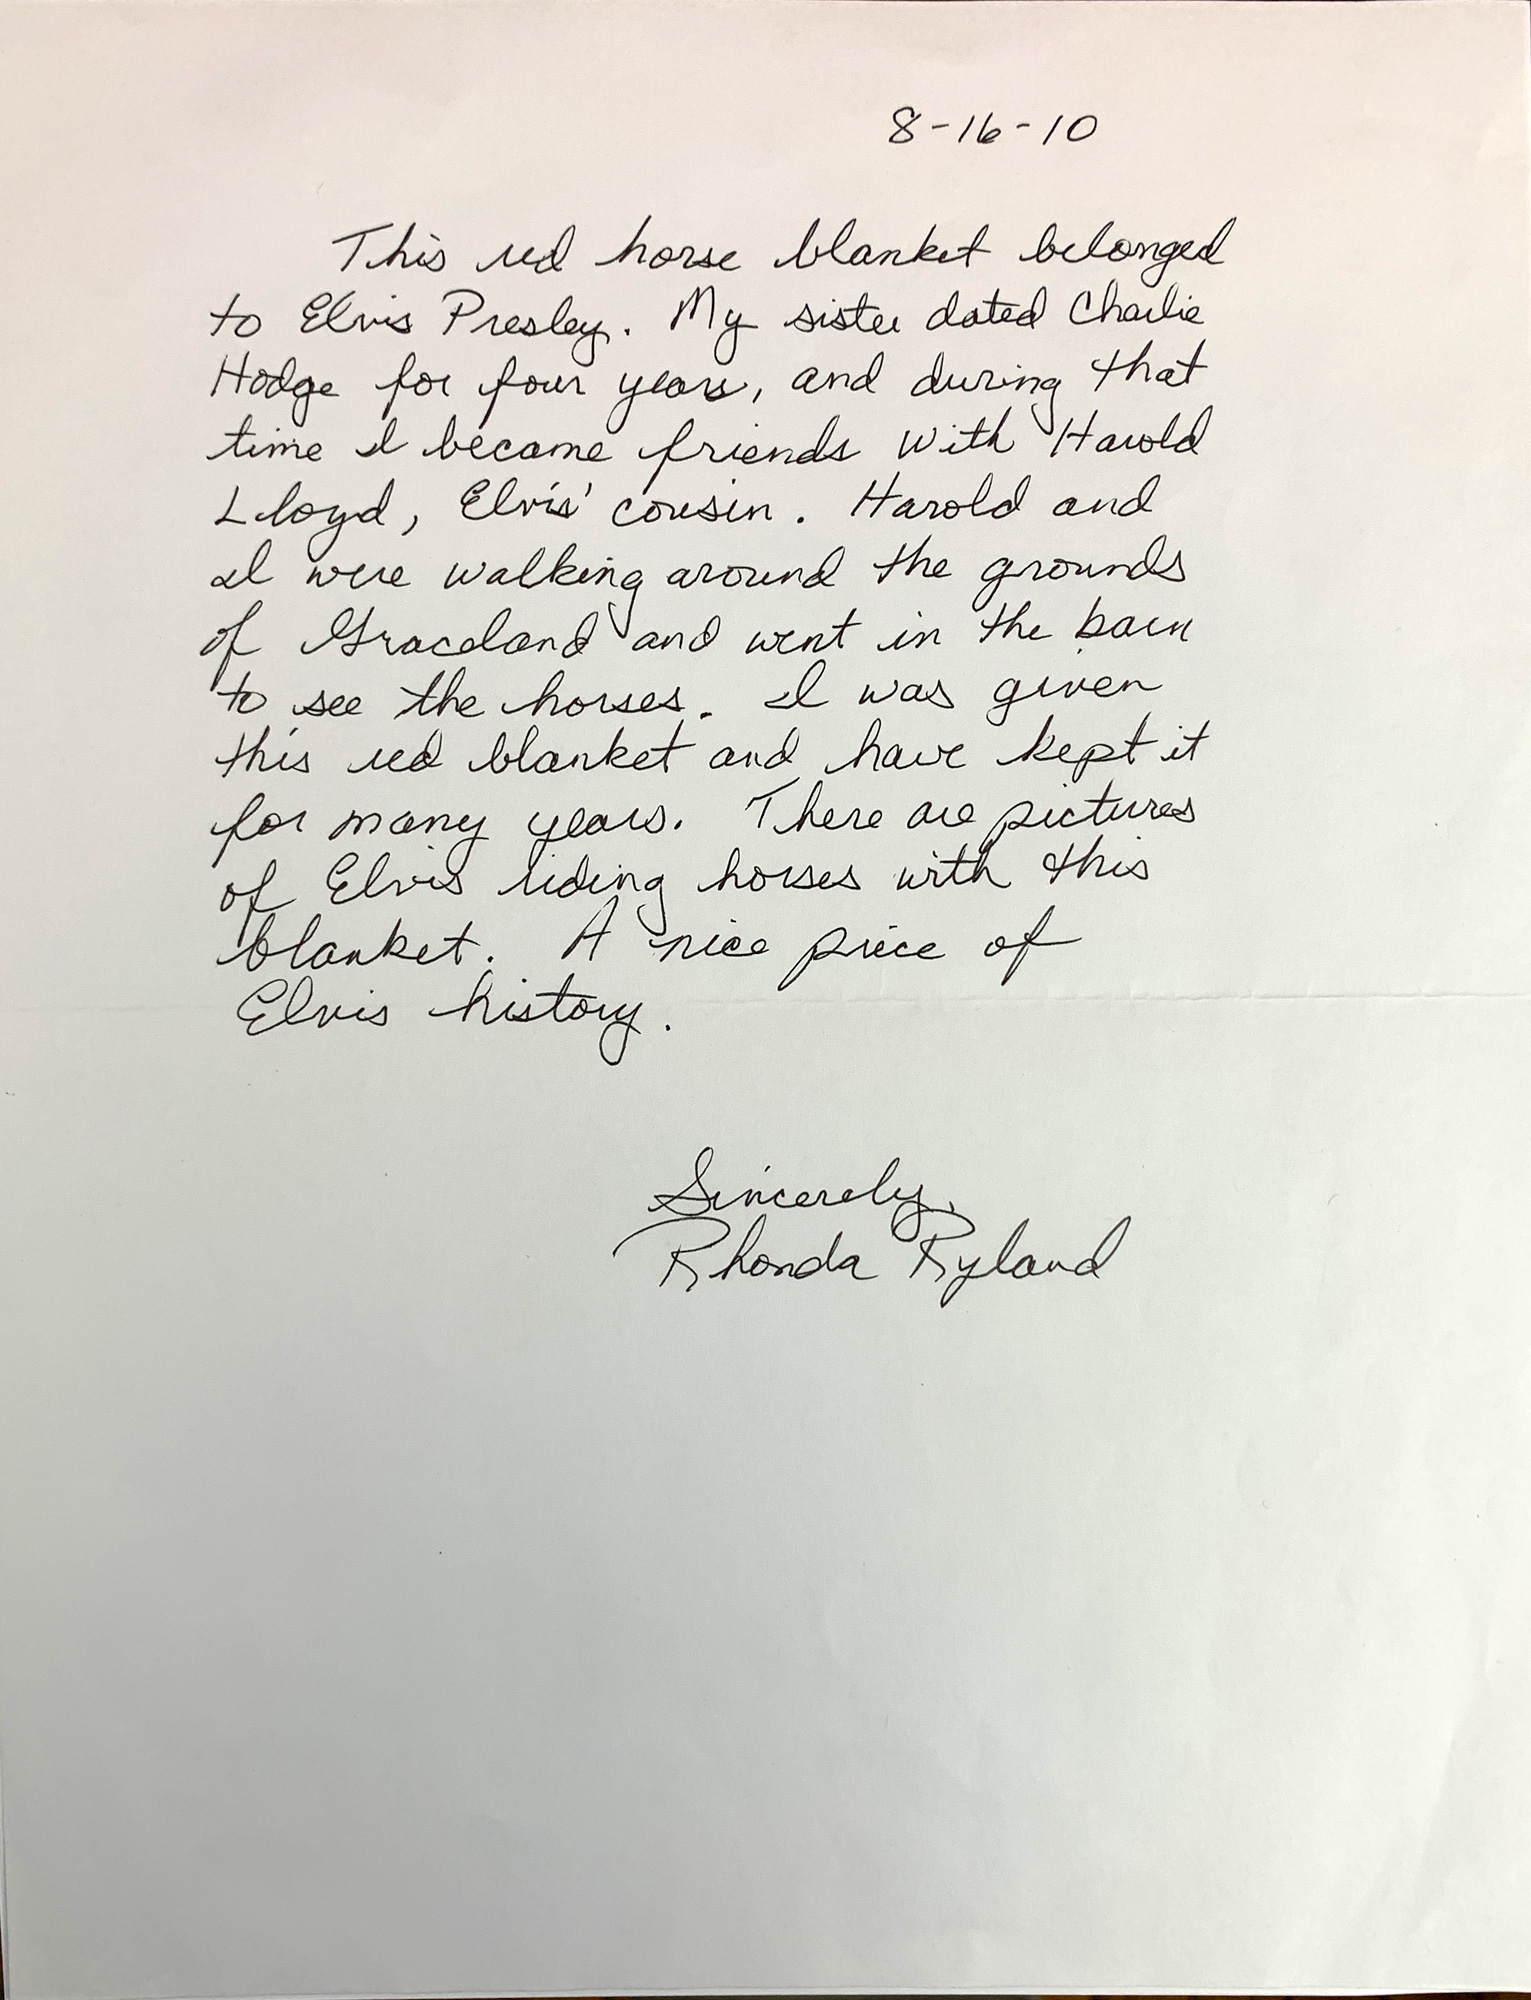 8-16-10
This red horse blanket belonged
to Elvis Presley. My sister dated Charlie
Hodge for four years, and during that
time I became friends with Harold
Lloyd, Elvis' cousin. Harold and
I were walking around the grounds
of Graceland and went in the barn
to see the horses. I was given
this red blanket and have kept it
for many years. There are pictures
of Elvis riding horses with this
blanket. A nice piece of
Elvis history.
Sincerely,
Rhonda Ryland